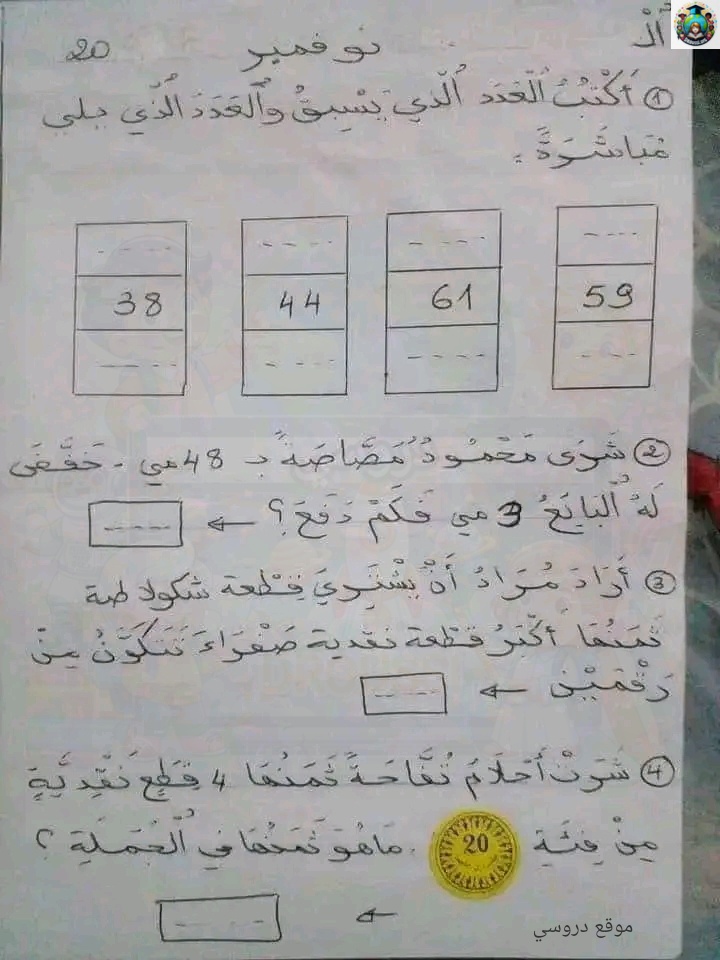 الـ نوفمبر 20
① أَكْتُبُ الْعَدَدَ الَّذِي يَسْبِقُ وَالْعَدَدَ الَّذِي يلي
مُبَاشَرَةً :
59 61 44 38
② شَرَى مَحْمُودُ مَصَّاصَةً بـ 48 مي - خَفَّضَ
لَهُ الْبَائِعُ 3 مي فَكَمْ دَفَعَ؟ ←
③ أَرَادَ مُرَادُ أَنْ يَشْتَرِيَ قِطْعة شكولاطة
ثَمَنُهَا أَكْبَرُ قطْعة نقدية صَفْرَاءَ تَتَكَوَّنُ مِنْ
رَقْمَيْنِ ←
④ شَرَتْ أَحْلَامُ تُفَّاحَةً ثَمَنُهَا 4 قِطَعٍ نَقْدِيَّةٍ
مِنْ فِئَةِ 20 . مَا هُوَ ثَمَنُهَا فِي الْجُمْلَةِ ؟
←
موقع دروسي